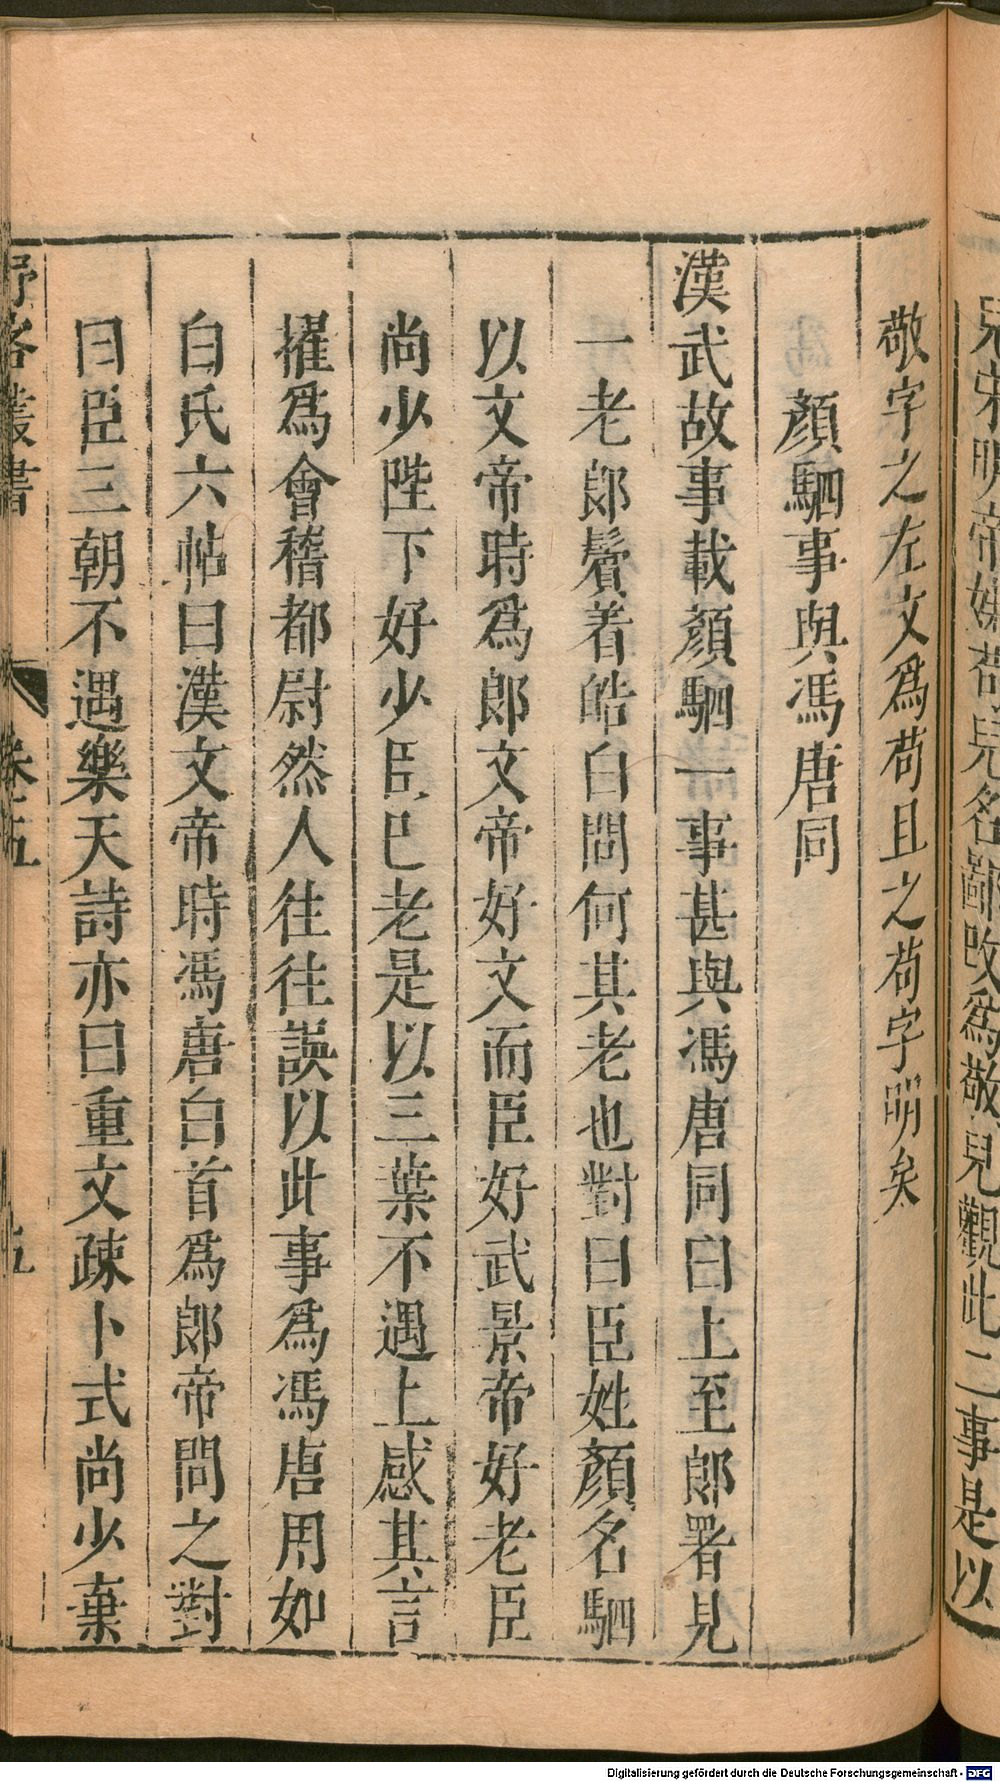 兒宋明帝嫌苟兒名鄙改爲敬兒觀此二事是以
敬字之左文爲苟且之苟字明矣
顏駟事與馮唐同
漢武故事載顏駟一事甚與馮唐同曰上至郎署見
一老郎鬢着皓白問何其老也對曰臣姓顏名駟
以文帝時爲郎文帝好文而臣好武景帝好老臣
尚少陛下好少臣已老是以三葉不遇上感其言
擢爲會稽都尉然人往往誤以此事爲馮唐用如
白氏六帖曰漢文帝時馮唐白首爲郎帝問之對
曰臣三朝不遇樂天詩亦曰重文疎卜式尚少棄
野客叢書 卷五 五
Digitalisierung gefördert durch die Deutsche Forschungsgemeinschaft - DFG